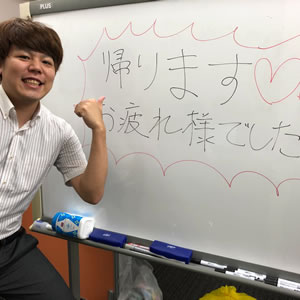 PLUS
帰ります♡
お疲れ様でした